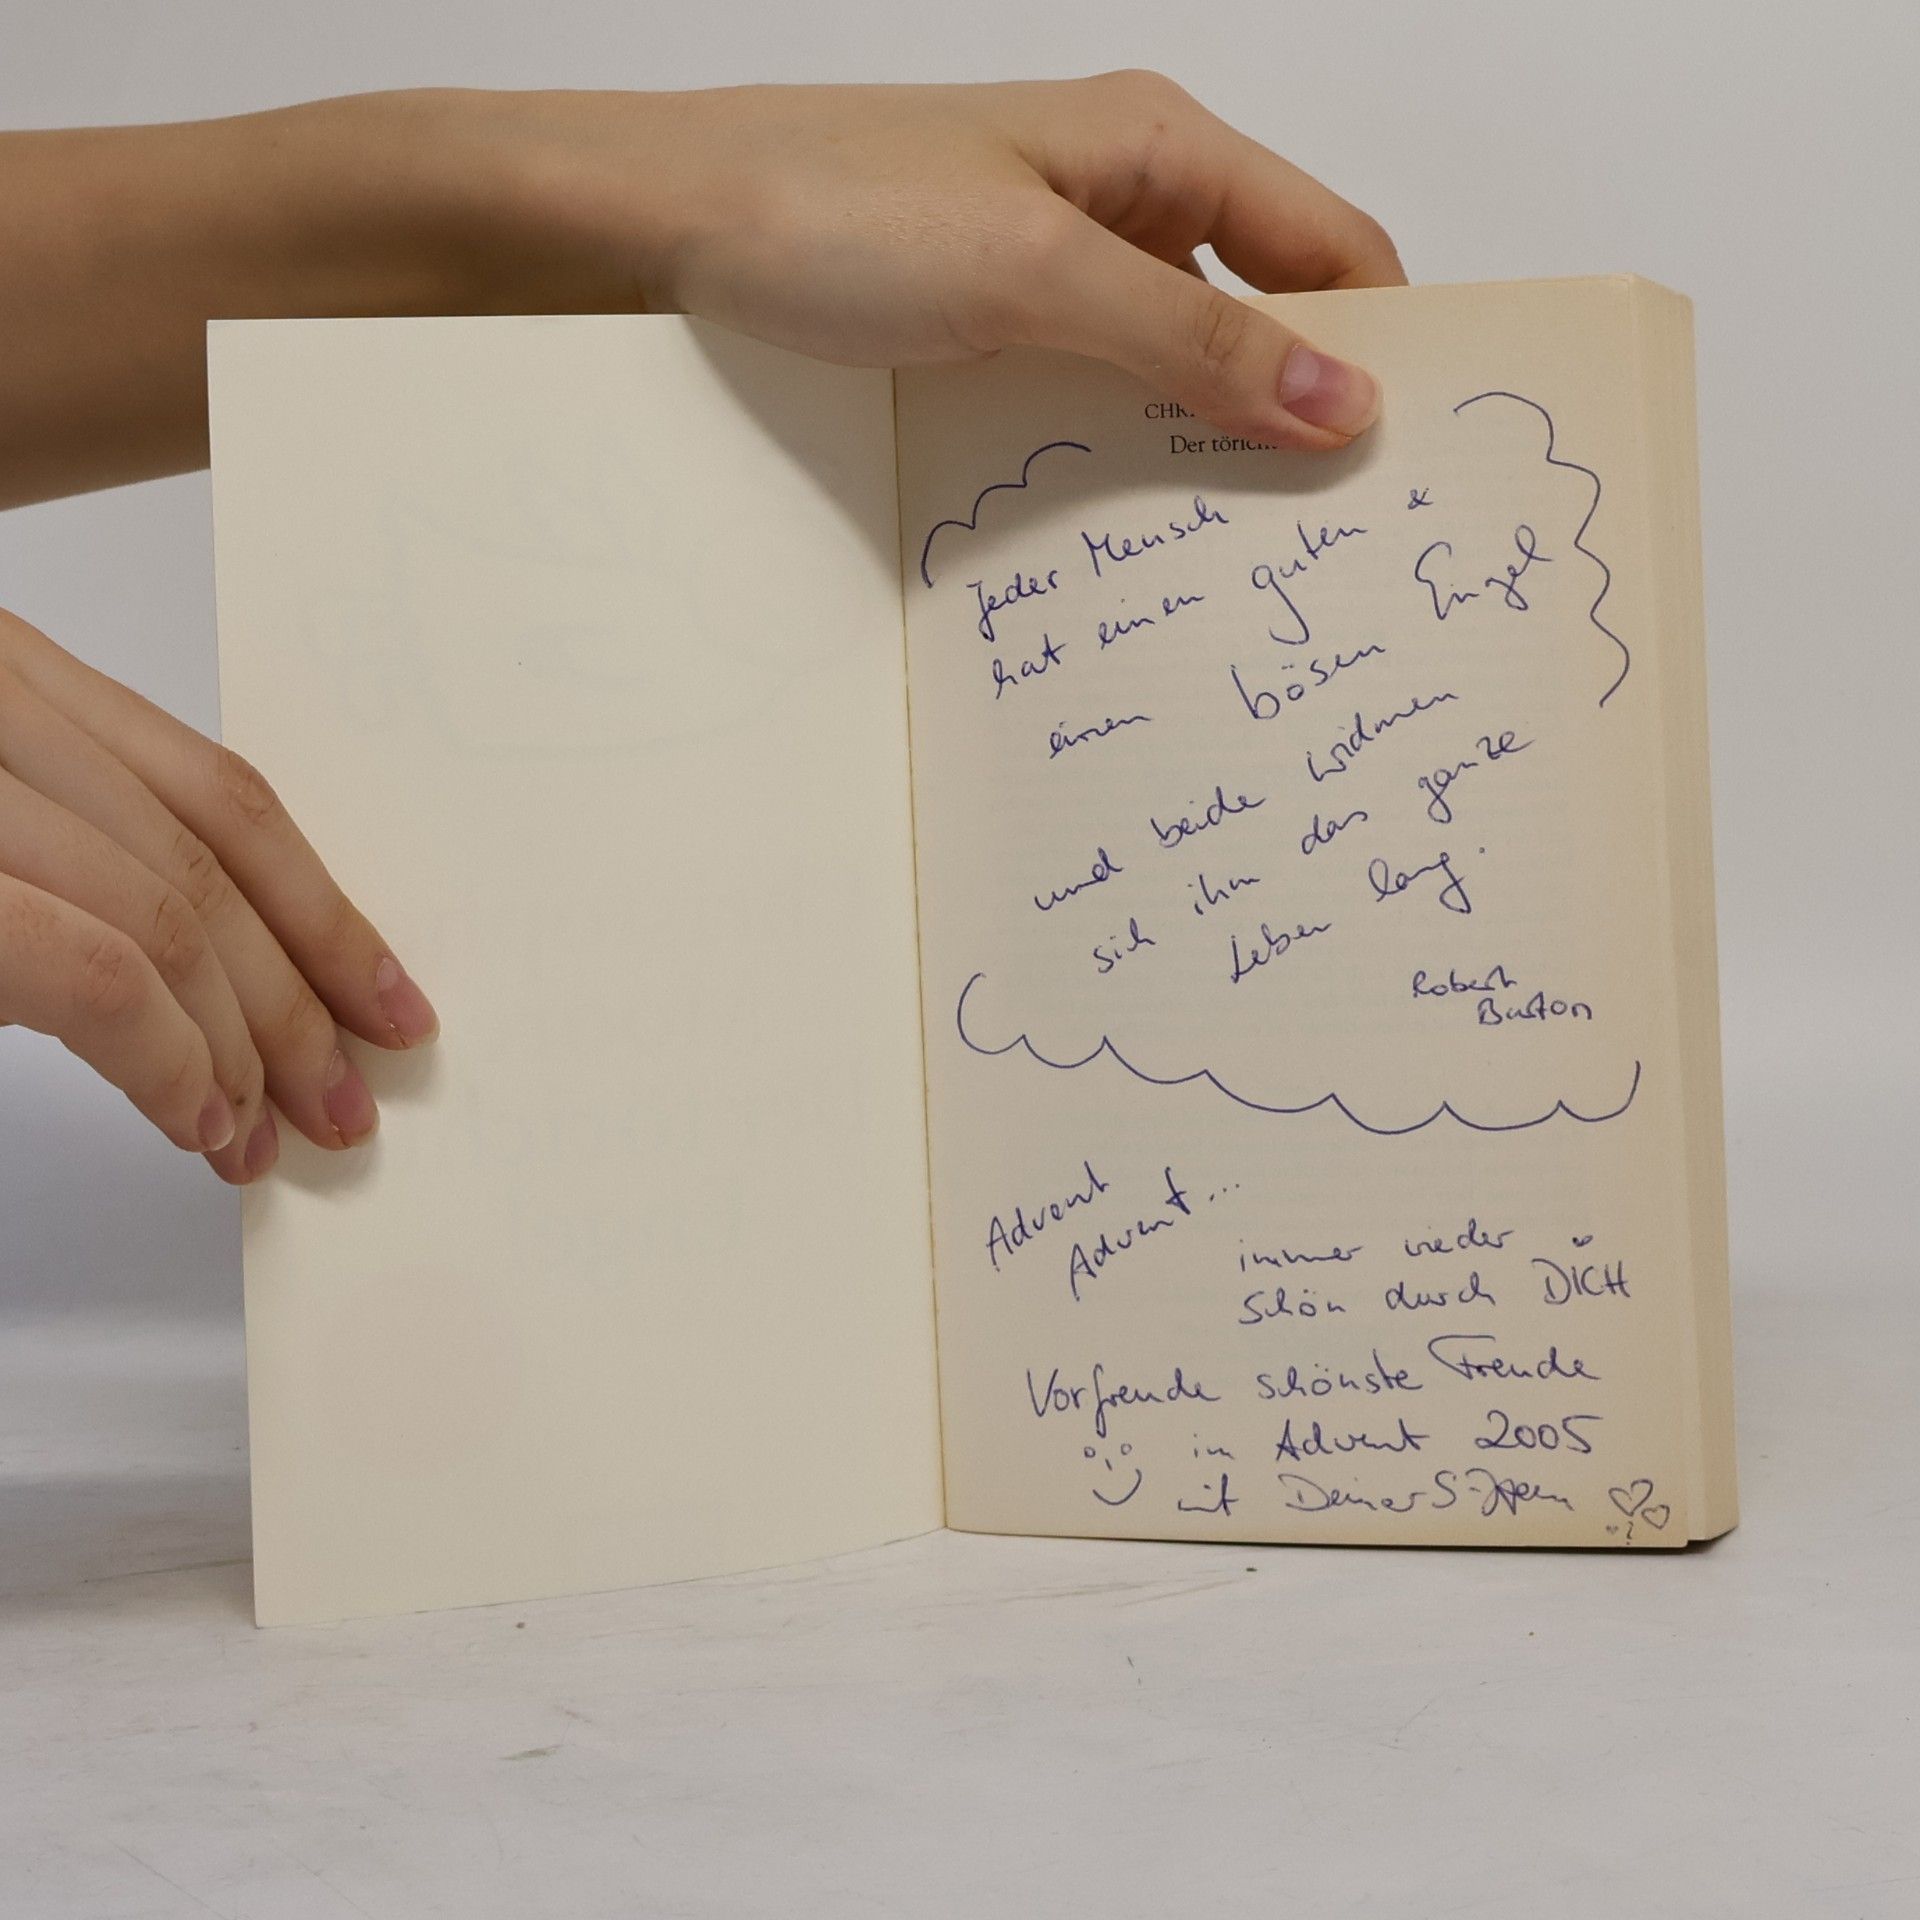 CHR
Der töricht
Jeder Mensch
hat einen guten &
einen bösen Engel
und beide widmen
sich ihm das ganze
Leben lang.
Robert
Burton
Advent
Advent...
immer wieder
schön durch DICH
Vorfreude schönste Freude
im Advent 2005
mit Deiner